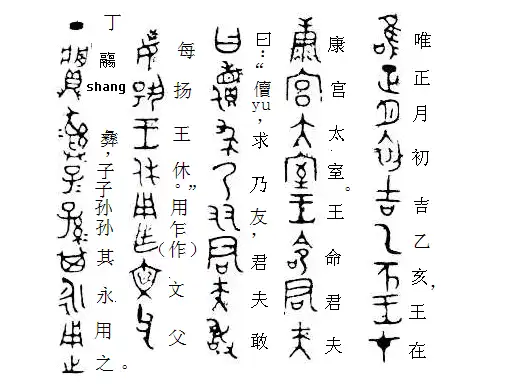 唯正月初吉乙亥,王在
康宫太室。王命君夫
曰:“儥yu,求乃友,君夫敢
每扬王休。”用乍(作)文父
丁鬺shang彝,子子孙孙其永用之。